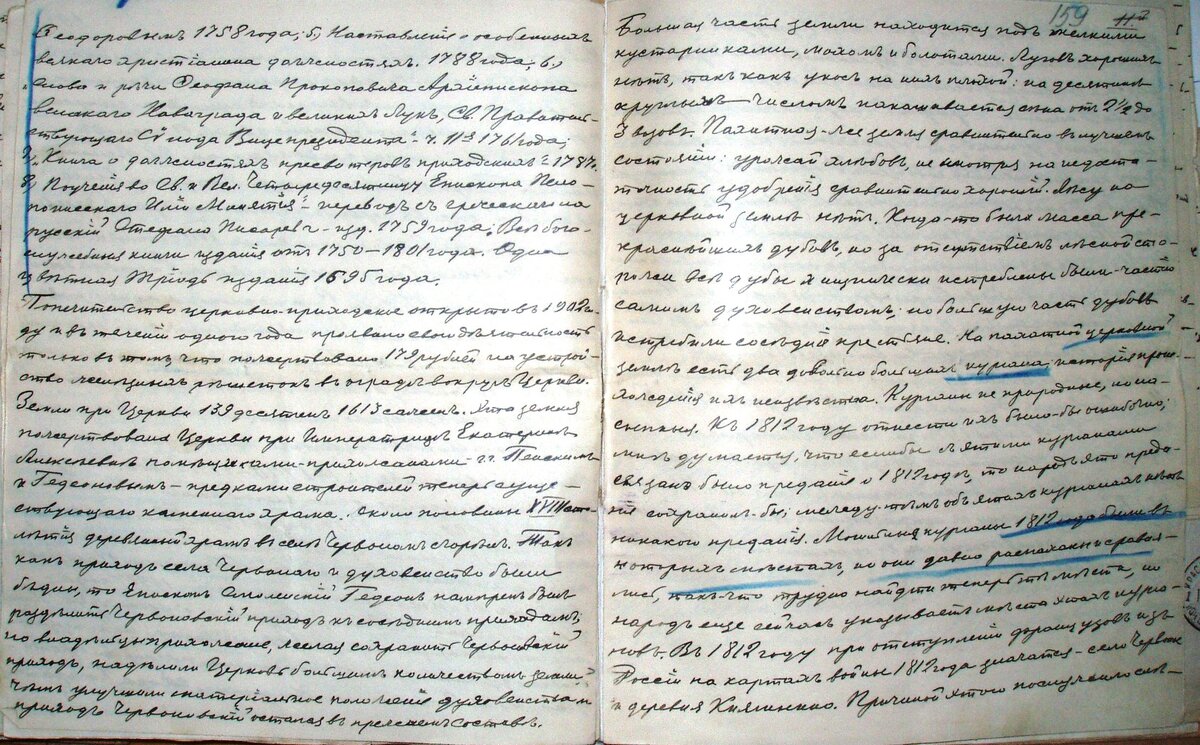 Ѳеодоровымъ 1758 года; 5) Наставленіе о особенныхъ
всякаго христіанина должностяхъ. 1788 года; 6,)
Слова и рѣчи Ѳеофана Прокоповича Архіепископа
великаго Новаграда и великихъ Лукъ, Св. Правитель-
ствующаго Сѵнода Вицепрезидента" ч. III 1761 года;
7, Книга о должностяхъ пресвитеровъ приходскихъ" 1787г.
8, Поученія во Св. и Вел. Четыредесятницу Епископа Пело-
понисскаго Иліи Минятія" - переводъ съ греческаго на
русскій Стефана Писарева - изд. 1759 года; Всѣ бого-
служебныя книги изданія отъ 1750-1801 года. Одна
цвѣтная Тріодь изданія 1695 года.
Попечительство церковно-приходское открыто въ 1902 го-
ду и въ теченіи одного года проявило свою дѣятельность
только въ томъ, что пожертвовано 179 рублей на устрой-
ство желѣзныхъ рѣшетокъ въ оградѣ вокругъ Церкви.
Земли при Церкви 139 десятинъ 1613 сажен. Эта земля
пожертвована Церкви при Императрицѣ Екатеринѣ
Алексѣевнѣ помѣщиками-прихожанами - г.г. Пенскимъ
и Гедеоновымъ - предками строителей теперь суще-
ствующаго каменнаго храма. Около половины XVIII сто-
лѣтія деревянный храмъ въ селѣ Червономъ сгорѣлъ. Такъ
какъ приходъ села Червонаго и духовенство были
бѣдны, то Епископъ Смоленскій Гедеонъ намѣренъ былъ
раздѣлить Червоновскій приходъ къ сосѣднимъ приходамъ,
но владѣльцы прихожане, желая сохранить Червоновскій
приходъ, надѣлили Церковь большимъ количествомъ земли,
чѣмъ улучшили матеріальное положеніе духовенства и
приходъ Червоновскій остался въ прежнемъ составѣ.
159 11.
Большая часть земли находится подъ мелкими
кустарниками, мохомъ и болотами. Луговъ хорошихъ
нѣтъ, такъ какъ укосъ на нихъ плохой: на десятинѣ
круглымъ числомъ накашивается сѣна отъ 2½ до
3 возовъ. Пахатная-же земля сравнительно въ лучшемъ
состояніи: урожай хлѣбовъ, не смотря на недоста-
точность удобренія сравнительно хорошій. Лѣсу на
церковной землѣ нѣтъ. Когда-то была масса пре-
краснѣйшихъ дубовъ, но за отсутствіемъ лѣсной сто-
рожи всѣ дубы хищнически истреблены были - частію
самимъ духовенствомъ; но большую часть дубовъ
истребили сосѣдніе крестьяне. На пахатной церковной
землѣ есть два довольно большихъ кургана; исторія проис-
хожденія ихъ неизвѣстна. Курганы не природные, но на-
сыпные. Къ 1812 году отнести ихъ было-бы ошибочно;
мнѣ думается, что если бы съ этими курганами
связано было преданіе о 1812 годѣ, то народъ это преда-
ніе сохранилъ бы; между тѣмъ объ этихъ курганахъ нѣтъ
никакого преданія. Могильные курганы 1812 года были въ
которыхъ мѣстахъ, но они давно распаханы и сравня-
лись, такъ что трудно найти теперь тѣ мѣста, но
народъ еще сейчасъ указываетъ мѣста этихъ курга-
новъ. Въ 1812 году при отступленіи французовъ изъ
Россіи на картахъ войны 1812 года значатся - село Червоное
и деревня Княгинино. Причиной этого послужило слѣ-